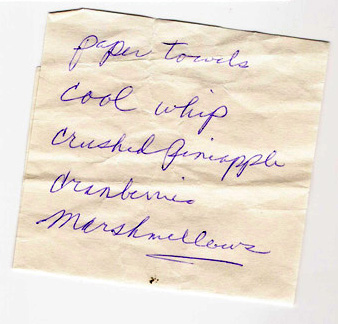 paper towels
cool whip
crushed pineapple
cranberries
marshmellows